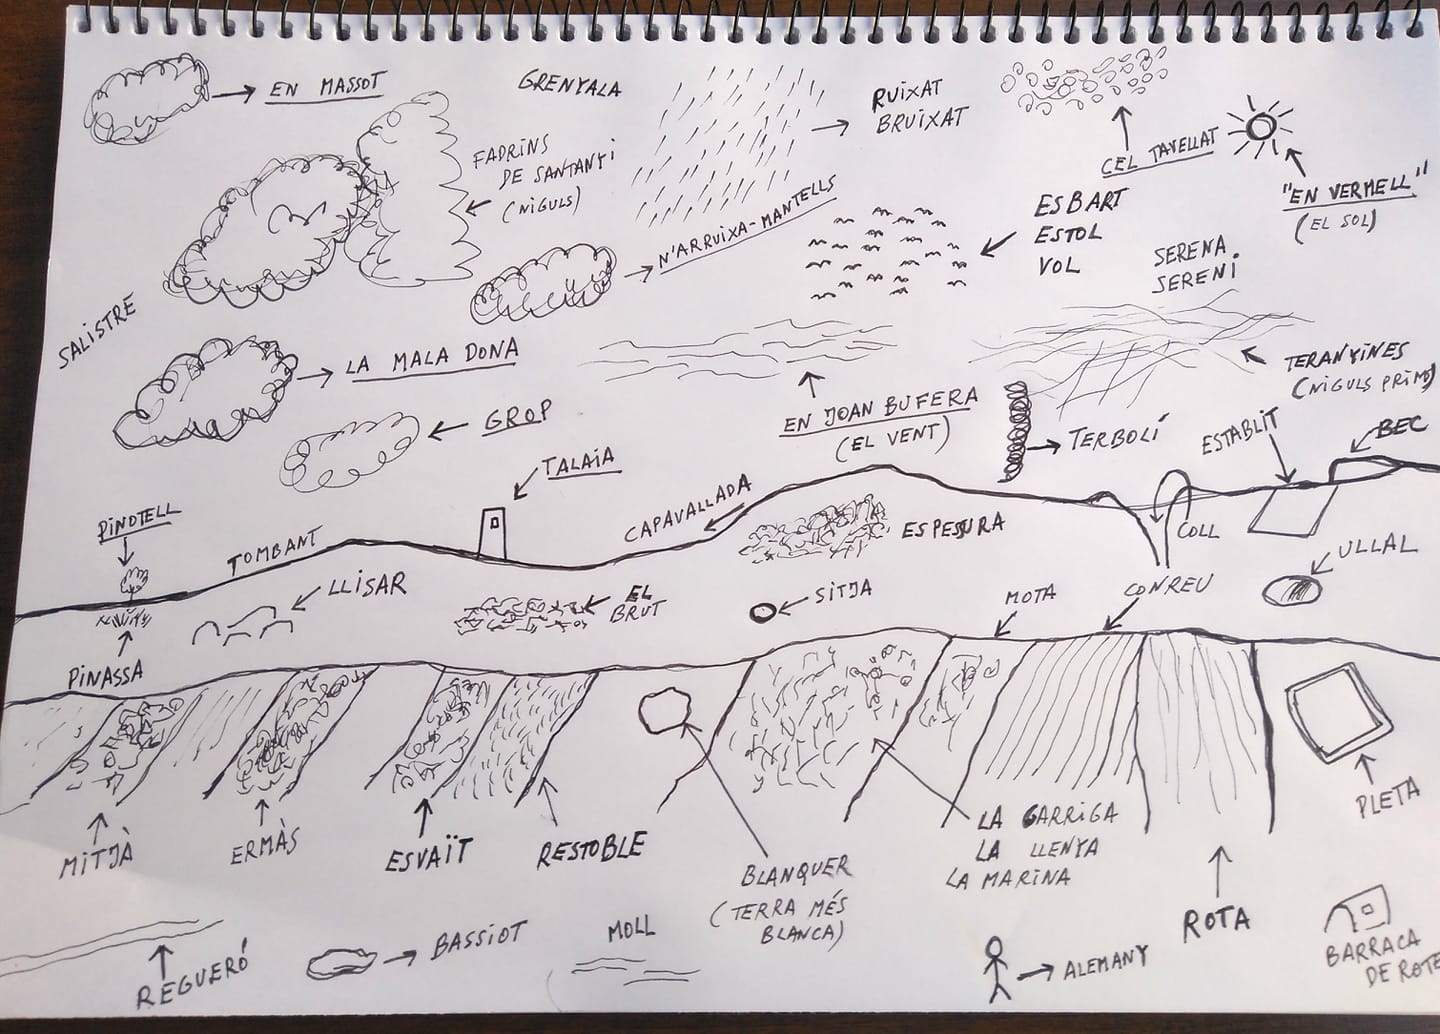 EN MASSOT
GRENYALA
RUIXAT
BRUIXAT
CEL TAVELLAT
"EN VERMELL"
(EL SOL)
FADRINS
DE SANTANYI
(NIGULS)
N'ARRUIXA-MANTELLS
ESBART
ESTOL
VOL
SERENA
SERENÍ
SALISTRE
LA MALA DONA
GROP
EN JOAN BUFERA
(EL VENT)
TERANYINES
(NIGULS PRIMS)
TERBOLÍ
ESTABLIT
BEC
TALAIA
PINOTELL
TOMBANT
CAPAVALLADA
ESPESSURA
COLL
ULLAL
LLISAR
EL
BRUT
SITJA
MOTA
CONREU
PINASSA
MITJÀ
ERMÀS
ESVAÏT
RESTOBLE
BLANQUER
(TERRA MÉS
BLANCA)
LA GARRIGA
LA LLENYA
LA MARINA
ROTA
PLETA
REGUERÓ
BASSIOT
MOLL
ALEMANY
BARRACA
DE ROTE